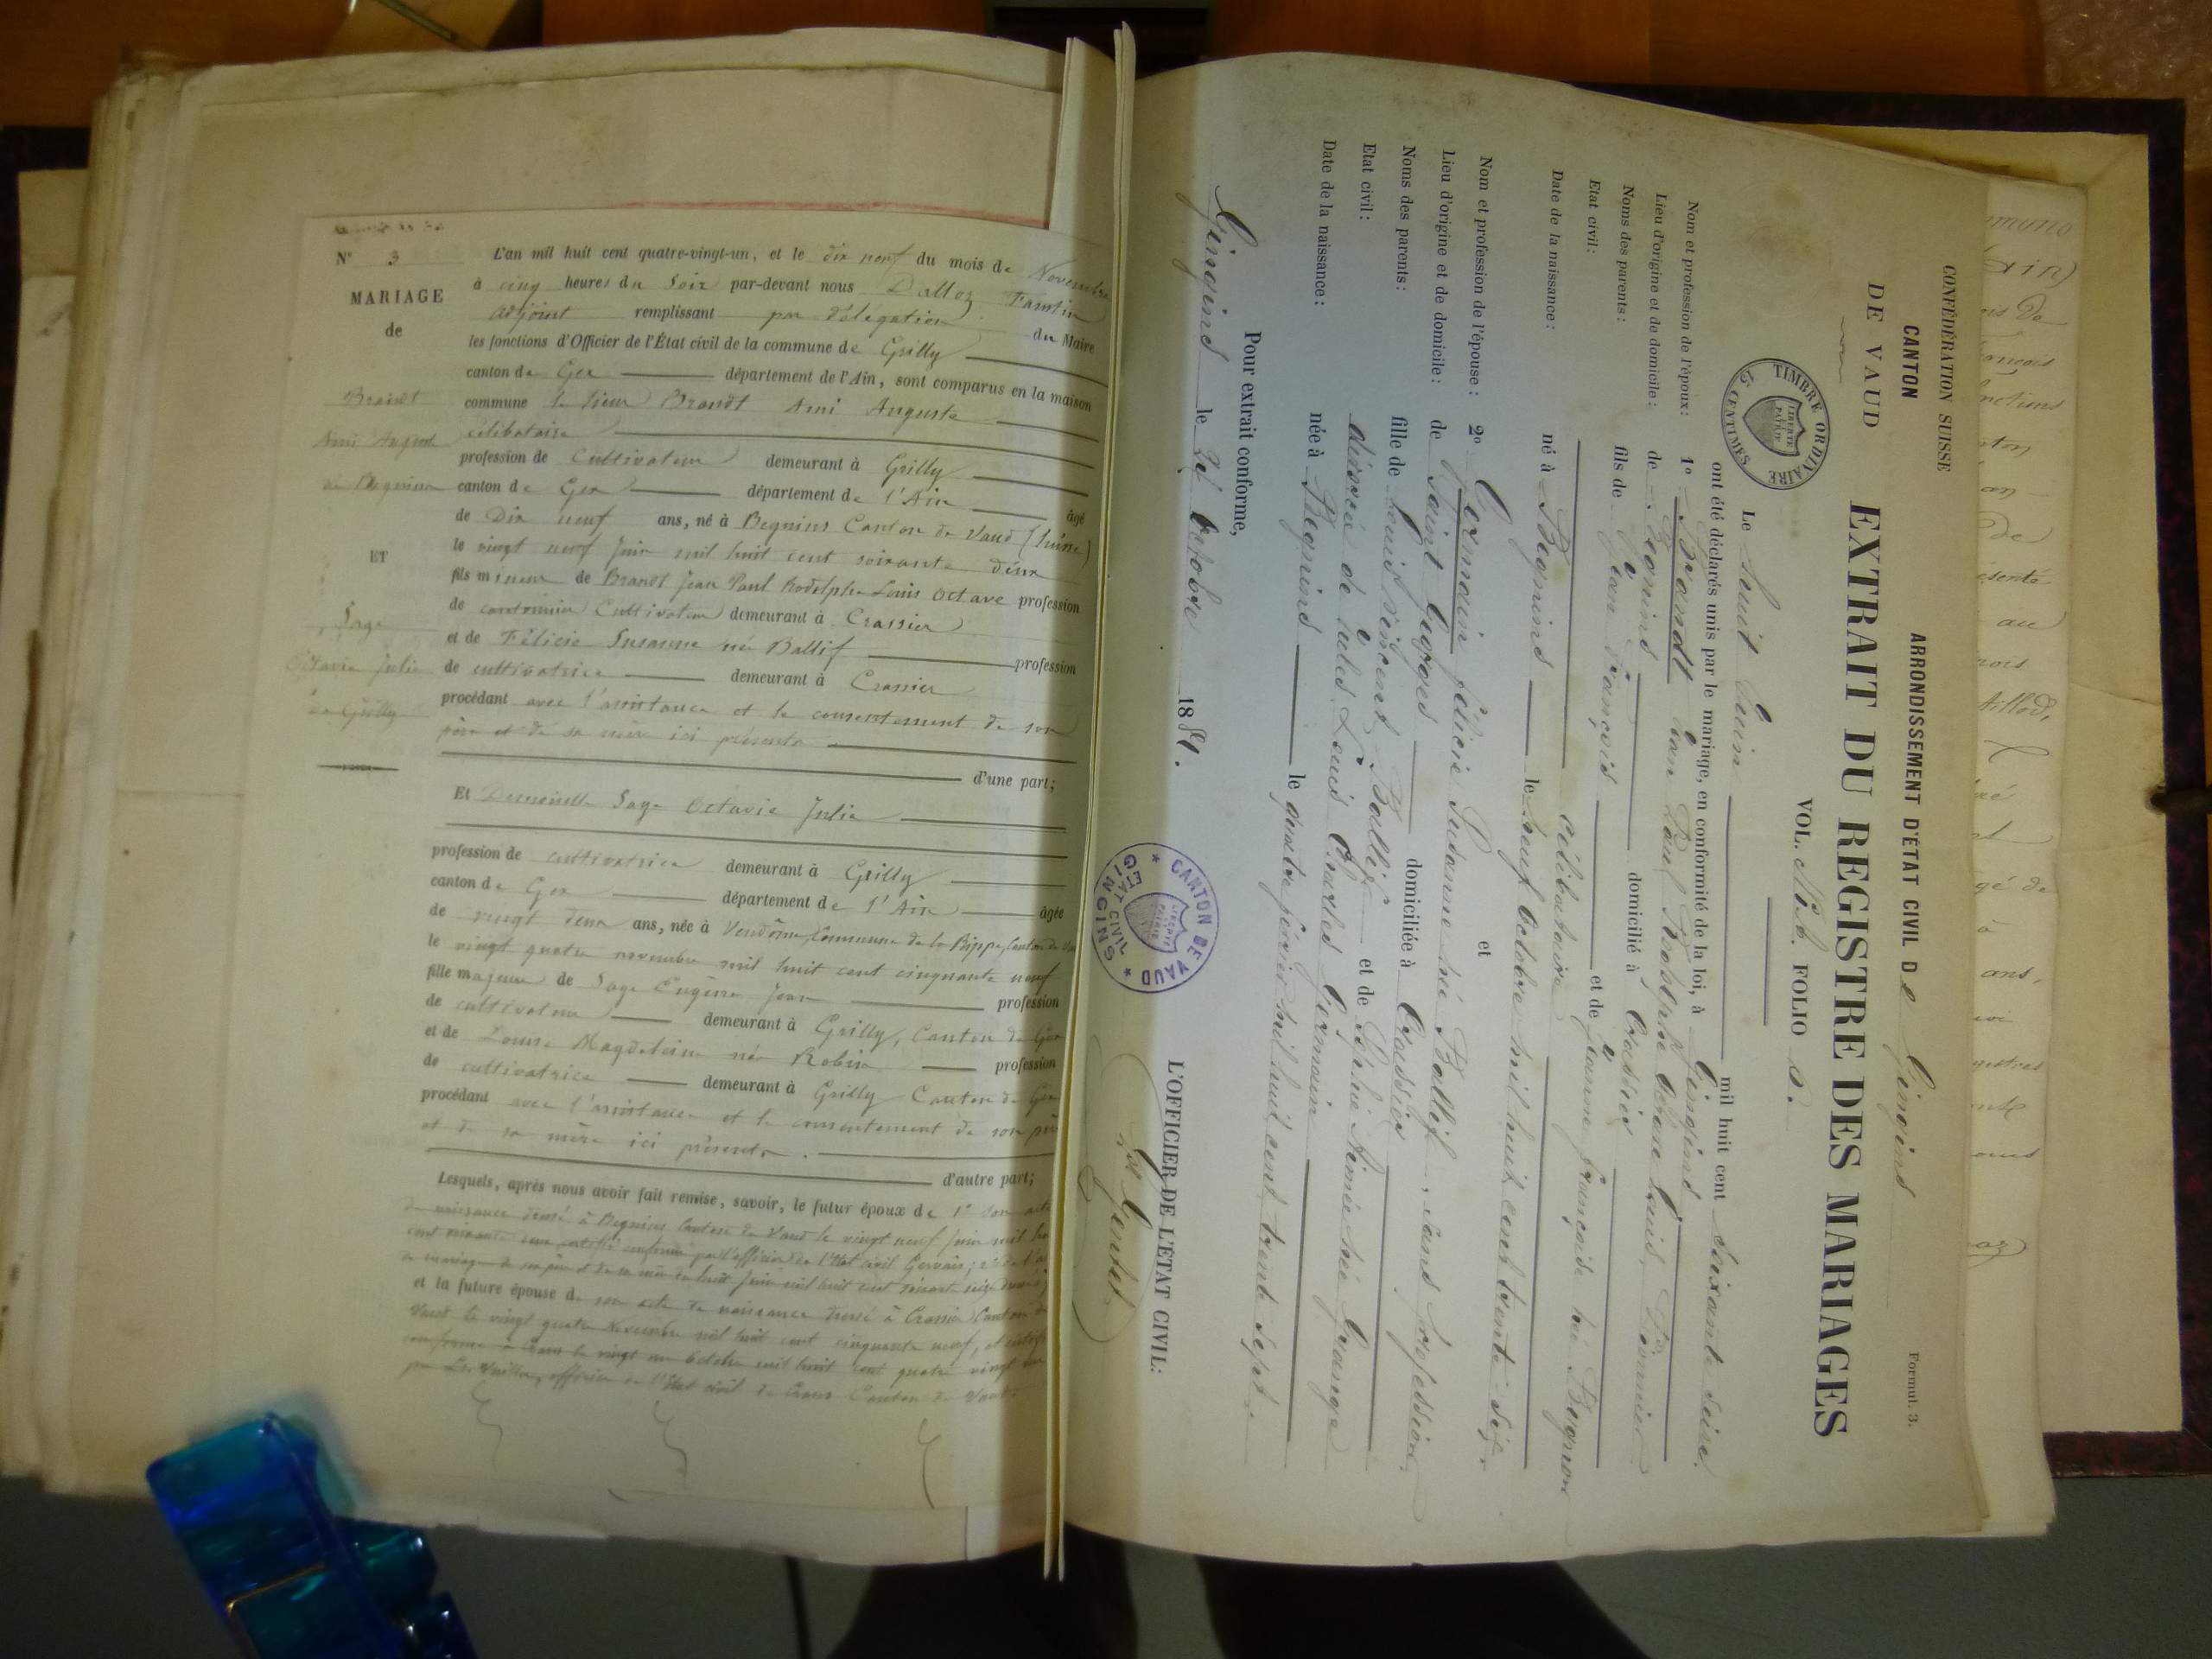 N° 3
MARIAGE
de
Brandt
Ami Auguste
de Begnins
ET
Sage
Octavie Julie
de Grilly
L'an mil huit cent quatre-vingt-un, et le dix neuf du mois de Novembre
à cinq heures du Soir par-devant nous Dalloz Fantin
adjoint remplissant par délégation du Maire
les fonctions d'Officier de l'État civil de la commune de Grilly
canton de Gex département de l'Ain, sont comparus en la maison
commune le sieur Brandt Ami Auguste
célibataire
profession de Cultivateur demeurant à Grilly
canton de Gex département de l'Ain âgé
de Dix neuf ans, né à Begnins Canton de Vaud (Suisse)
le vingt neuf Juin mil huit cent soixante deux
fils mineur de Brandt Jean Paul Rodolphe Louis Octave profession
de Cultivateur demeurant à Crassier
et de Félicie Susanne née Ballif profession
de cultivatrice demeurant à Crassier
procédant avec l'assistance et le consentement de son
père et de sa mère ici présents
d'une part;
Et Demoiselle Sage Octavie Julie
profession de cultivatrice demeurant à Grilly
canton de Gex département de l'Ain âgée
de vingt deux ans, née à Vendôme, Commune de la Rippe, Canton de
le vingt quatre novembre mil huit cent cinquante neuf
fille majeure de Sage Eugène Jean profession
de cultivateur demeurant à Grilly, Canton de Gex
et de Louise Magdeleine née Robin profession
de cultivatrice demeurant à Grilly Canton de Gex
procédant avec l'assistance et le consentement de son père
et de sa mère ici présents.
d'autre part;
Lesquels, après nous avoir fait remise, savoir, le futur époux de 1° son acte
de naissance dressé à Begnins Canton de Vaud le vingt neuf Juin mil
cent soixante deux, certifié conforme par l'officier de l'Etat civil Gervais; 2° de l'
de mariage de son père et de sa mère du huit Juin mil huit cent soixante seize
et la future épouse de son acte de naissance dressé à Crassier Canton de
Vaud le vingt quatre Novembre mil huit cent cinquante neuf, et
conforme à le vingt un Octobre mil huit cent quatre vingt
par officier de l'Etat civil de Canton de Vaud
CONFÉDÉRATION SUISSE
CANTON
DE VAUD
ARRONDISSEMENT D'ÉTAT CIVIL De Gingins
Formul. 3.
EXTRAIT DU REGISTRE DES MARIAGES
VOL. FOLIO
TIMBRE ORDINAIRE
LIBERTÉ PATRIE
15 CENTIMES
Le huit Juin mil huit cent Soixante Seize
ont été déclarés unis par le mariage, en conformité de la loi, à Gingins
Nom et profession de l'époux: 1° Brandt Jean Paul Rodolphe Octave Louis
Lieu d'origine et de domicile: de Begnins domicilié à Crassier
Noms des parents: fils de Jean François et de Jeanne Françoise née
Etat civil: célibataire
Date de la naissance: né à Begnins le neuf Octobre mil huit cent trente sept
et
Nom et profession de l'épouse: 2° Germain Félicie Susanne née Ballif, sans profession
Lieu d'origine et de domicile: de Saint Georges domiciliée à Crassier
Noms des parents: fille de Louis Vincent Ballif et de Aimée née Grange
Etat civil: divorcée de Jules Louis Charles Germain
Date de la naissance: née à Begnins le quatre février mil huit cent trente sept
Pour extrait conforme,
Gingins le 24 Octobre 1881.
L'OFFICIER DE L'ÉTAT CIVIL:
CANTON DE VAUD
ETAT CIVIL
LIBERTÉ PATRIE
GINGINS